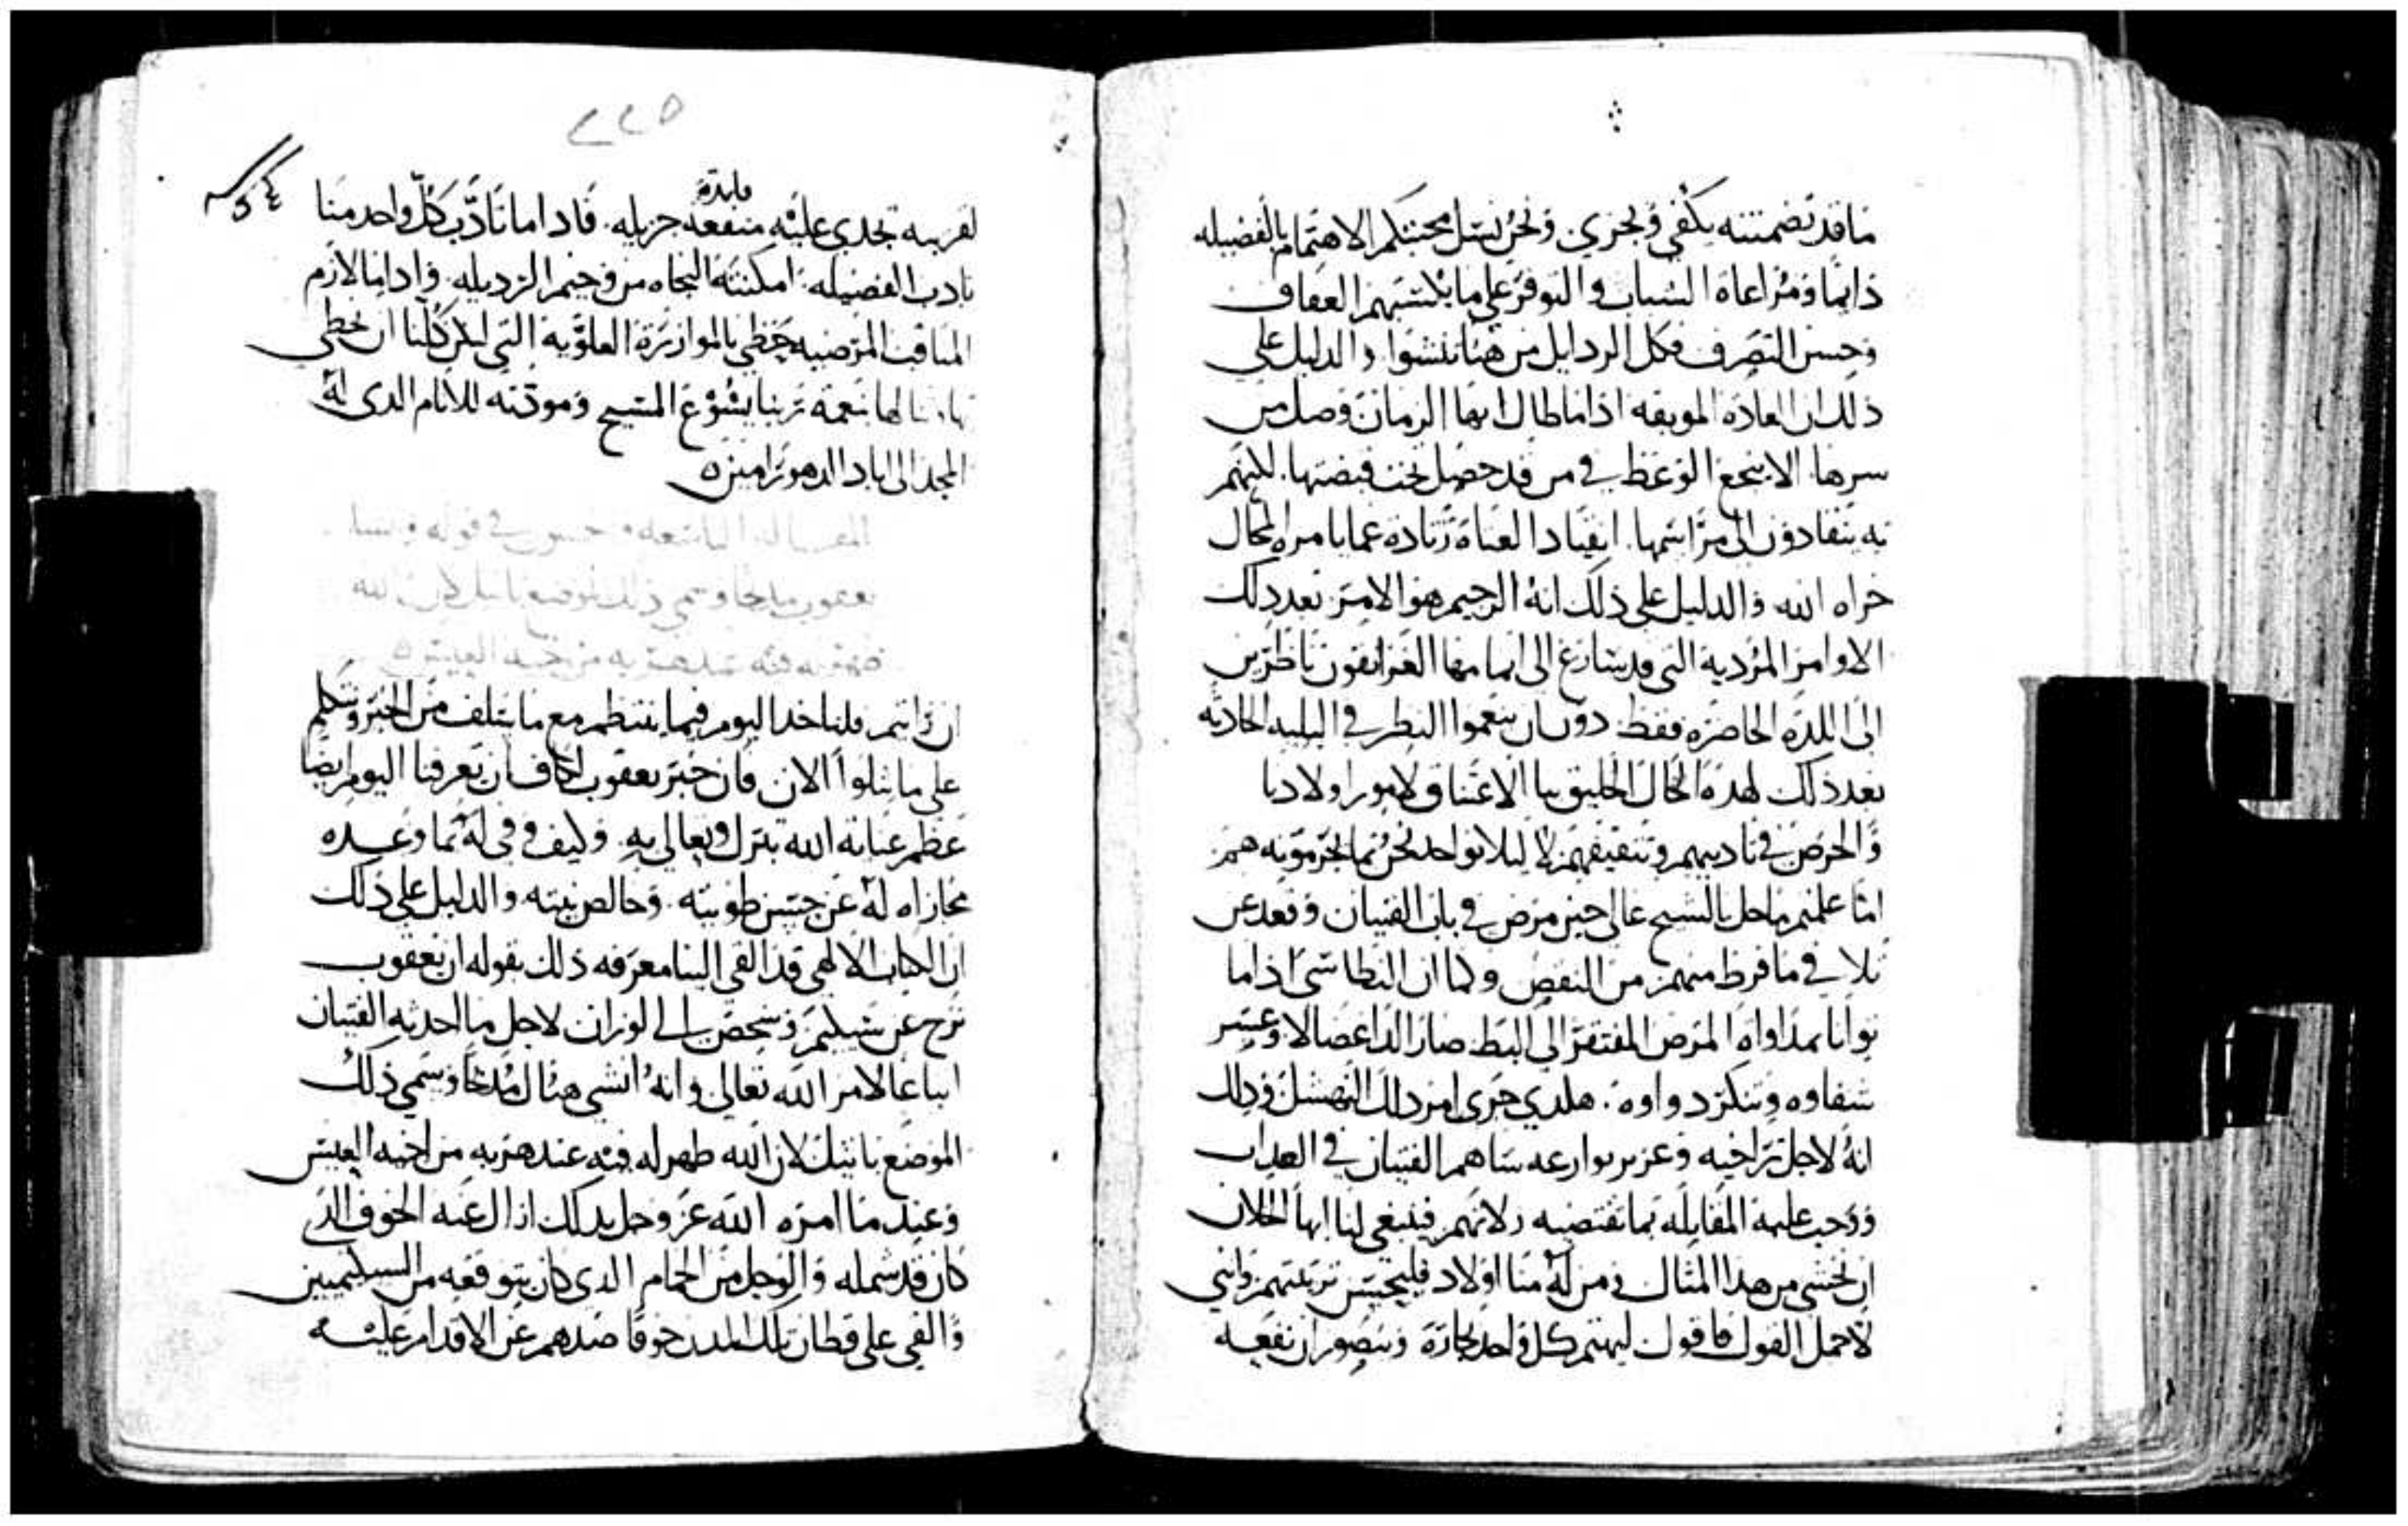 ما قد تضمنته يكفي ويجزي ونحن نسل محبتكم الاهتمام بالفضيله
دايما ومراعاة الشباب والتوفر على ما يكسبهم العفاف
وحسن التصرف فكل الردايل من هنا تنشوا والدليل علي
ذلك ان العادة الموبقه اذا ما طال بها الزمان وصل من
سرها الا ينجع الوعظ في من قد حصل تحت قبضتها لكنهم
ينقادون الى مراسمها انقياد العناة زيادة عما يامر المحال
خزاه الله والدليل على ذلك انه الرجيم هو الامر بعد ذلك
الاوامر المردية التي قد يسارع الى اتمامها الغرانقون ناظرين
الى اللذه الحاضره فقط دون ان ينعموا النظر في البليه الحادثه
بعد ذلك لهذه الحال الخليق بنا الاعتناق لامور اولادنا
والحرص في تاديبهم وتثقيفهم لا ليلا نواخد نحن بما اجرموته هم
اما علمتم ما حل بالشيخ عالي حين مرض في باب الفتيان وقعد عن
تلافي ما فرط منهم من النقص وكما ان النطاسي اذا ما
توانا بمداواة المرض المفتقر الى البط صار الداء عضالا وعسر
شفاوه وتنكر دواوه هلدي جرى امر ذلك النهشل وذلك
انه لاجل تراخيه وعزير توارعه ساهم الفتيان في العداب
ووجب عليه المقابله بما تقتضيه زلاتهم فينبغي لنا ايها الخلان
ان نخشى من هدا المثال ومن له منا اولاد فليحسن تربيتهم وانني
لاجمل القول فاقول ليهتم كل واحد بجاره ويتصور ان نفعه
٢٢٥
٥٤
فايدة
لقريبه تجدي عليه منفعه جزيله فاداما تادب كل واحد منا
بادب الفضيله امكنته النجاه من وخيم الرديله وادا ما لازم
المناقب المرضيه حظي بالموازرة العلوية التي ليكن كلنا ان نحظي
بها بنعمة ربنا يشوع المسيح ومودته للانام الدى له
المجد الى اباد الدهور امين
المقالة التاسعه وخمسون في قوله وبنيا
يعقوب مدبحا وسمي ذلك الموضع باتيل لان الله
ظهر له فيه عند هربه من اخيه العيس
ان رايتم فلناخد اليوم فيما ينتظم مع ما سلف من الخبر ونتكلم
علي ما تلوا الان فان خبر يعقوب كاف ان يعرفنا اليوم ايضا
عظم عناية الله تبرك وتعالى به وكيف وفى له بما وعده
مجازاه له عن حسن طويته وخالص نيته والدليل علي ذلك
ان الكتاب الالهي قد القى الينا معرفه ذلك بقوله ان يعقوب
نزح عن شيليم وشخص الى لوزان لاجل ما احدثه الفتيان
اتباعا لامر الله تعالى وانه انشى هناك مدبحا وسمي ذلك
الموضع باتيل لان الله ظهر له فيه عند هربه من اخيه العيس
وعند ما امره الله عز وجل بدلك ازال عنه الخوف الدي
كان قد شمله والوجل من الحمام الدى كان يتوقعه من السيكيميين
والقي على قطان تلك المدن خوفا صدهم عن الاقدام عليه